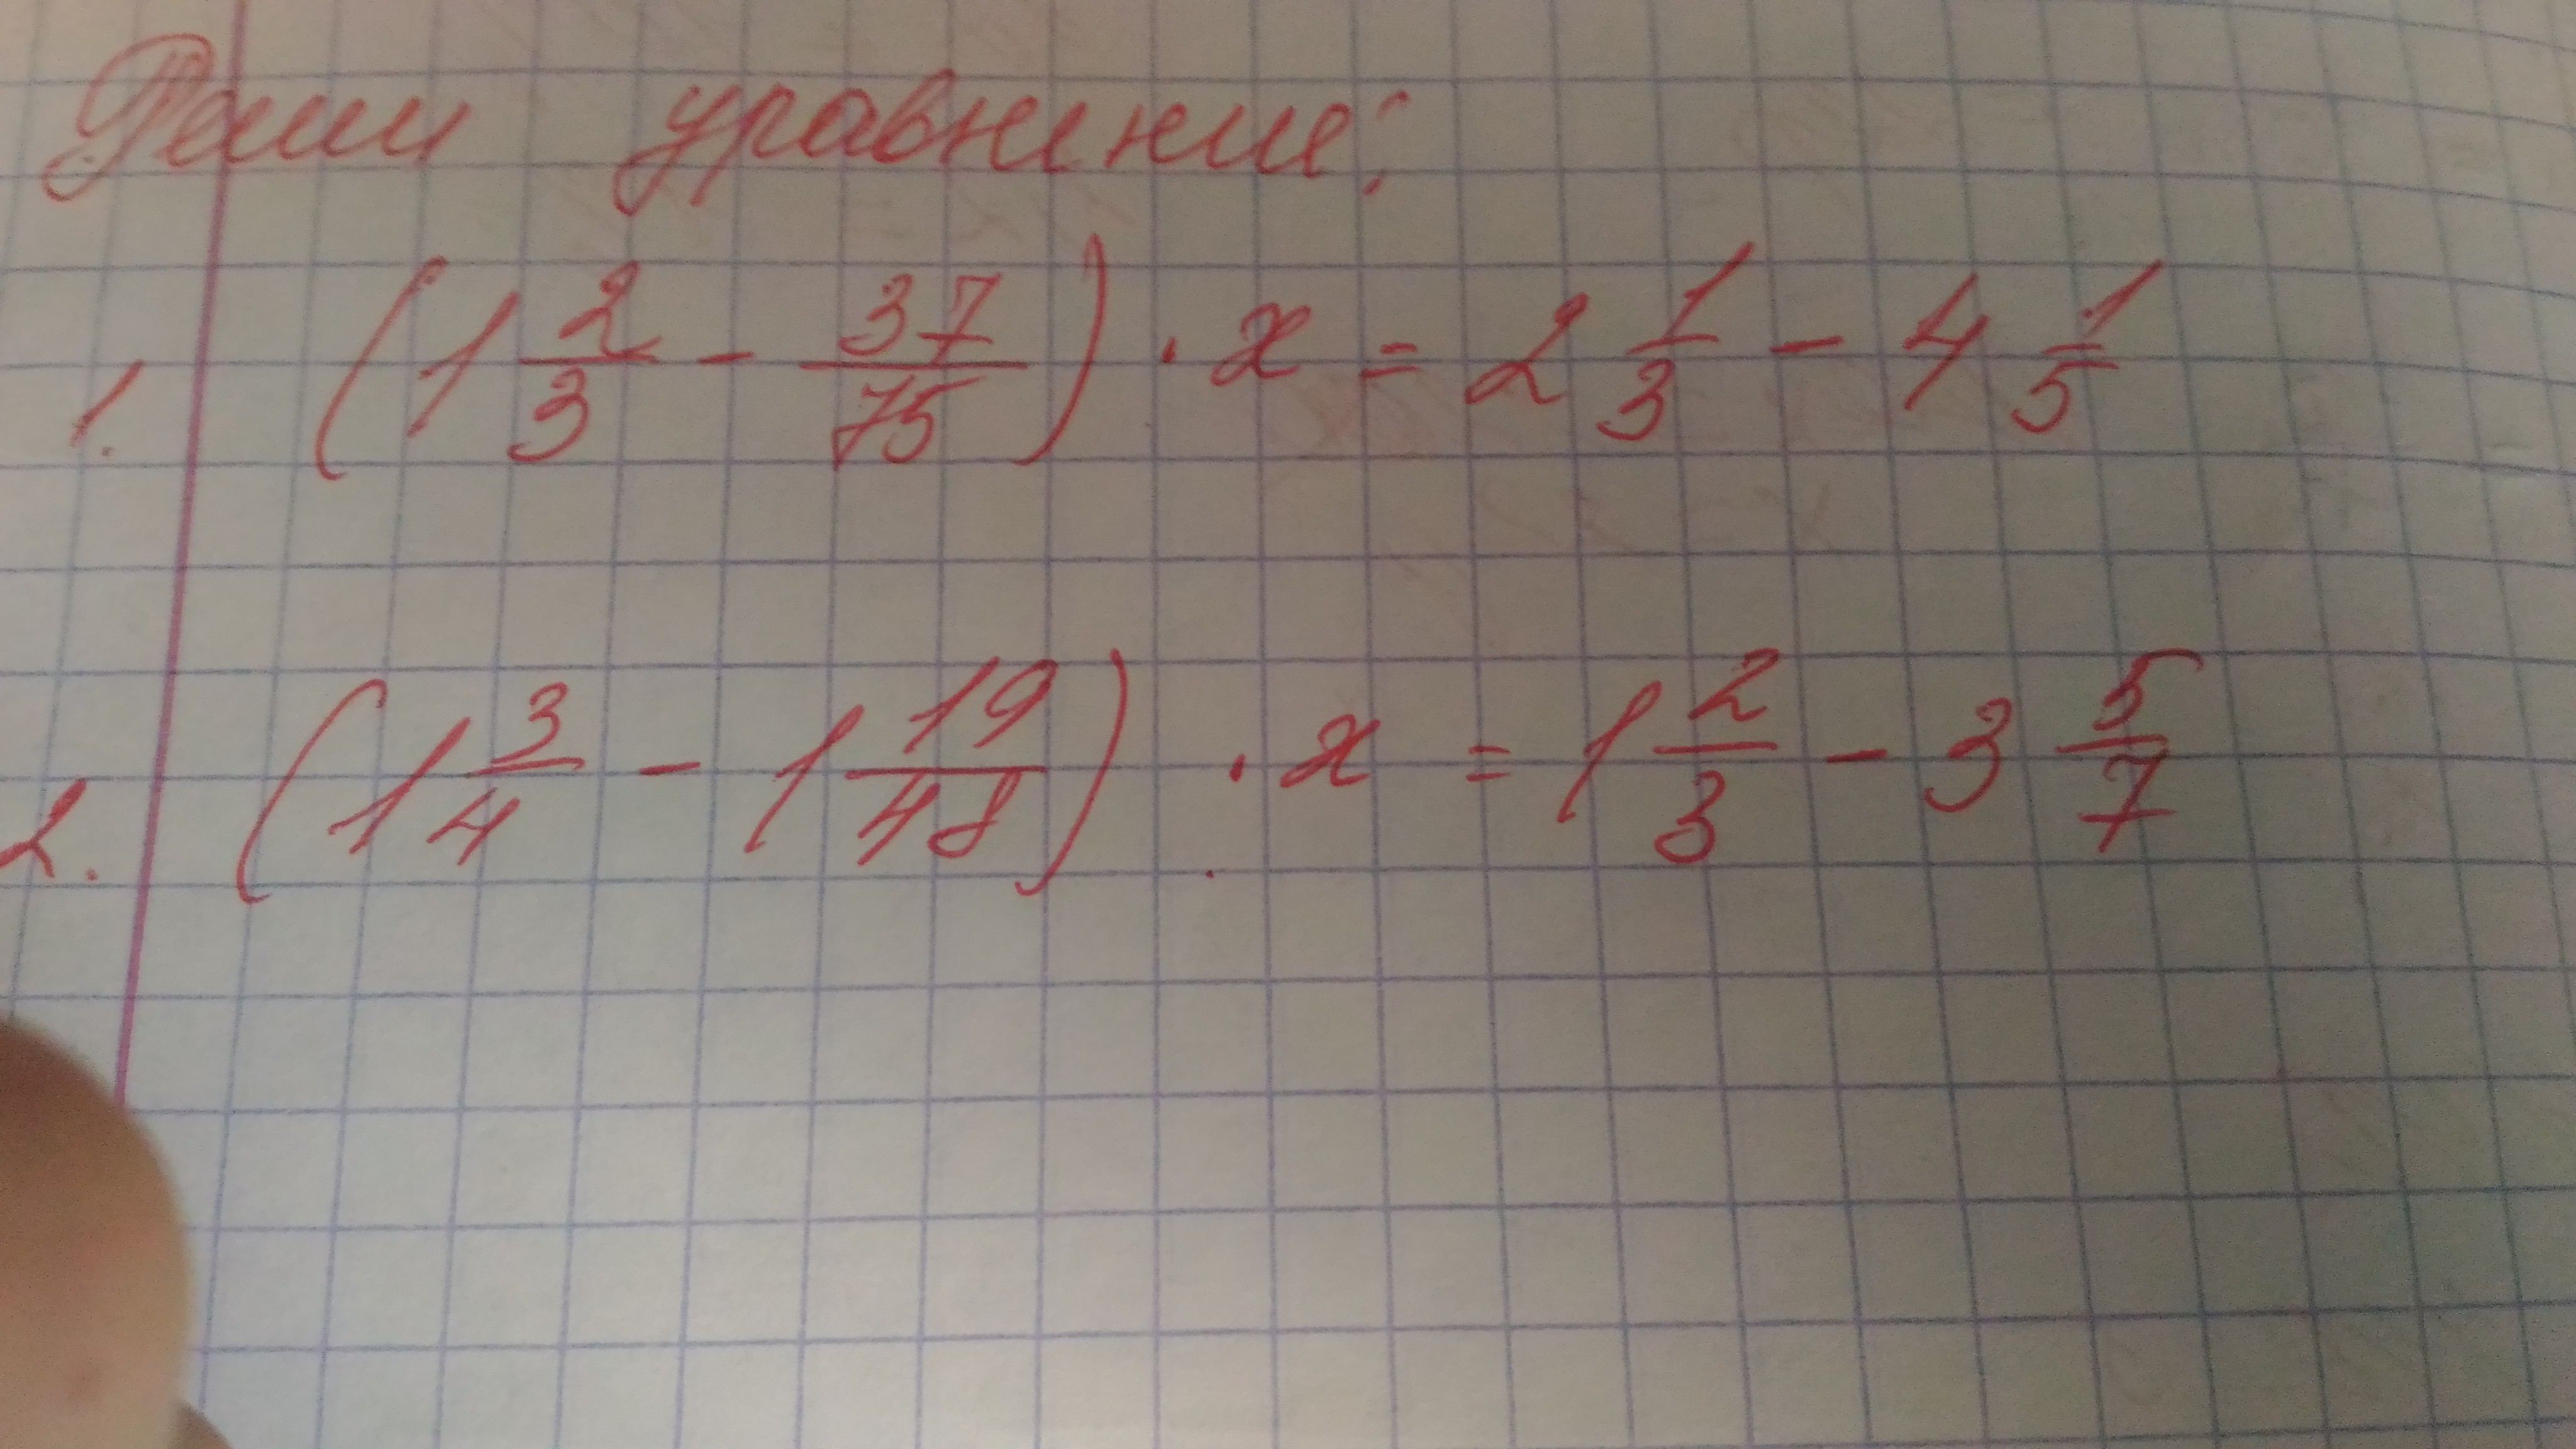 Реши уравнение:
1. (1 2/3 - 37/75) · x = 2 1/3 - 4 1/5
2. (1 3/4 - 1 19/48) · x = 1 2/3 - 3 5/7